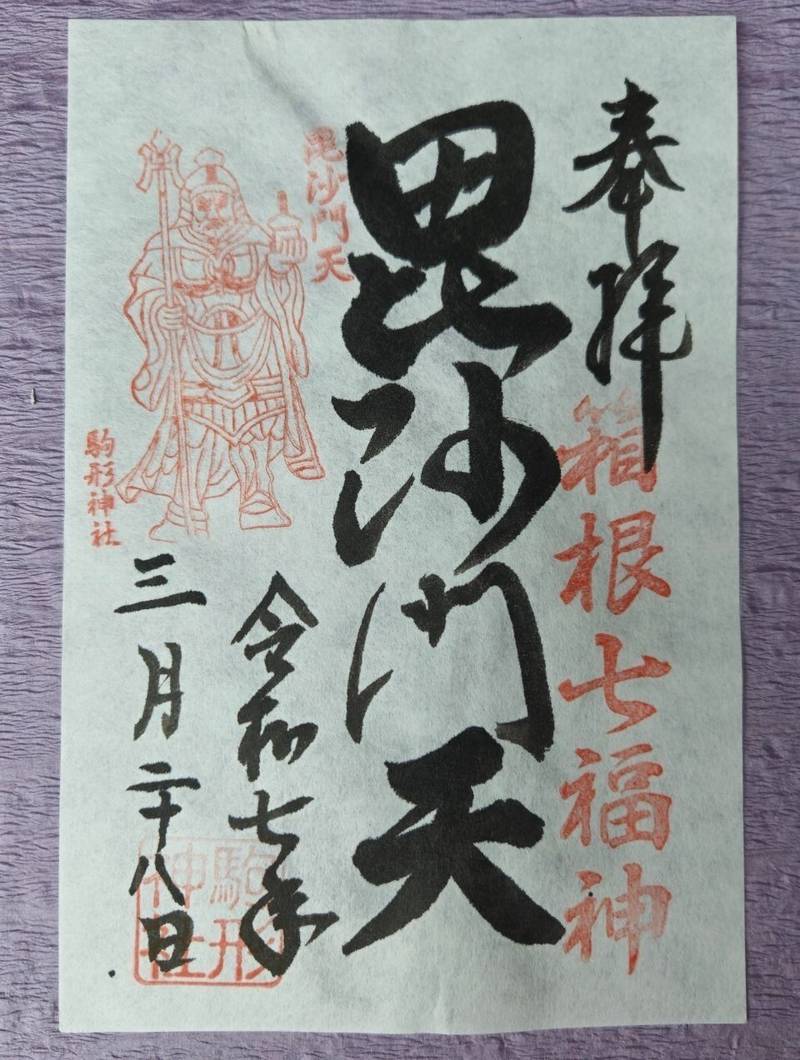 奉拝
箱根七福神
毘沙門天
毘沙門天
令和七年
三月二十八日
駒形神社
駒形
神社